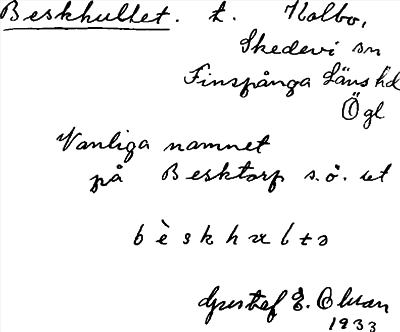 Beskhultet. t. Holbo,
Skedevi sn
Finspånga Läns hd
Ögl
Vanliga namnet
på Besktorp s.ö. ut
bèskhultə
Gustaf E. Olsson
1933